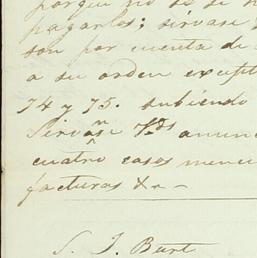 porque no se si
pagarlos; sirvase
son por cuenta de
a su orden except
74 y 75. subiendo
Sirvanse Vds anun
cuatro casos menci
facturas &a -
S. J. Burt